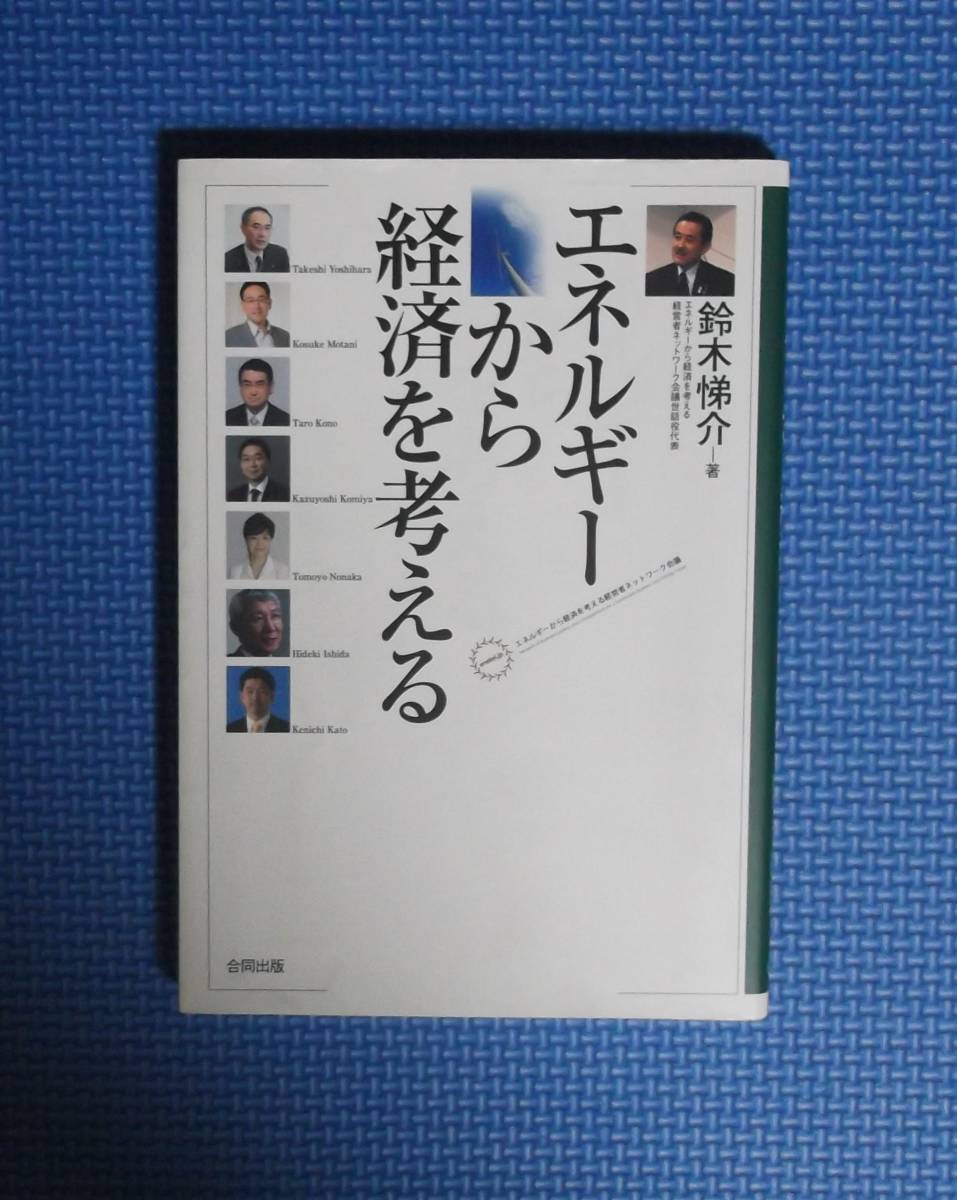 エネルギー
から
経済を考える
鈴木悌介―著
エネルギーから経済を考える
経営者ネットワーク会議世話役代表
Takeshi Yoshihara
Kosuke Motani
Taro Kono
Kazuyoshi Komiya
Tomoyo Nonaka
Hideki Ishida
Kenichi Kato
エネルギーから経済を考える経営者ネットワーク会議
合同出版